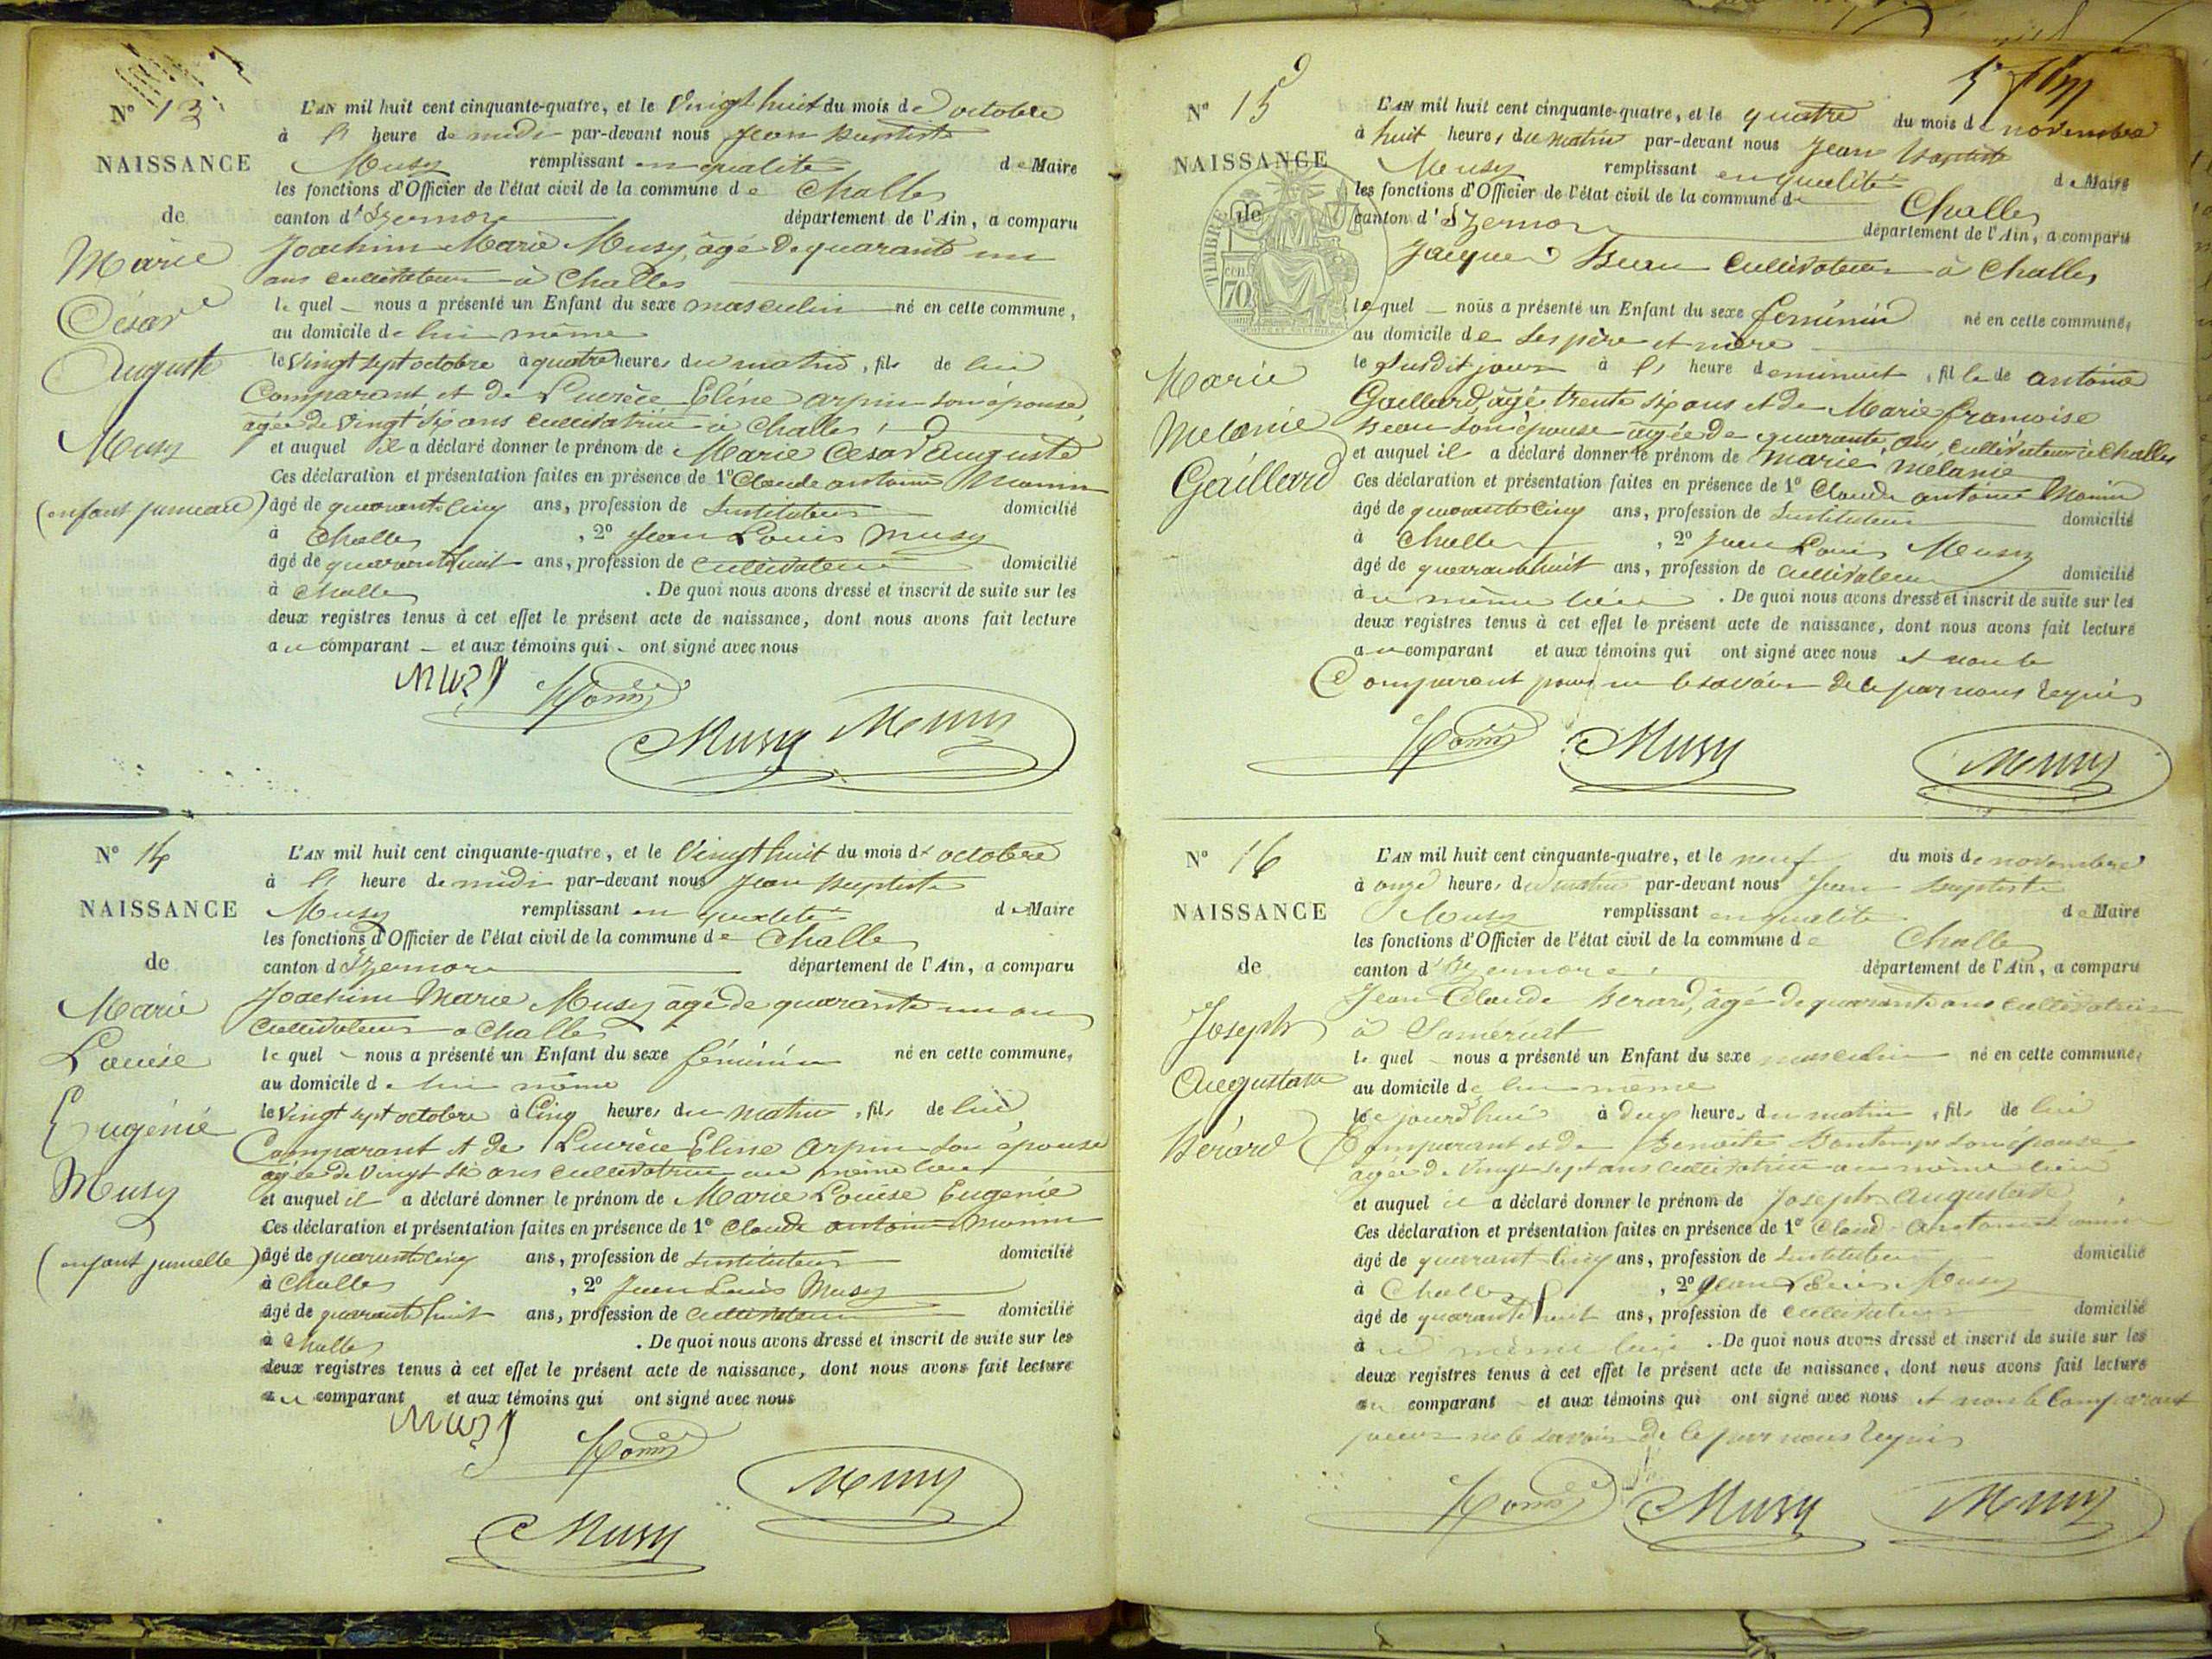 N° 13
NAISSANCE
de
Marie
César
Auguste
Musy
(enfant jumeau)
L'AN mil huit cent cinquante-quatre, et le Vingt huit du mois d octobre
à heure de midi par-devant nous Jean Baptiste
Musy remplissant en qualité de Maire
les fonctions d'Officier de l'état civil de la commune de Challes
canton d'Izernore département de l'Ain, a comparu
Joachim Marie Musy, âgé de quarante un
ans cultivateur à Challes
le quel nous a présenté un Enfant du sexe masculin né en cette commune,
au domicile de lui même
le Vingt sept octobre à quatre heures du matin, fils de lui
Comparant et de Lucrèce Eline Arpin son épouse
âgée de Vingt six ans cultivatrice à Challes
et auquel il a déclaré donner le prénom de Marie César Auguste
Ces déclaration et présentation faites en présence de 1° Claude antoine Monin
âgé de quarante cinq ans, profession de Instituteur domicilié
à Challes, 2° Jean Louis Musy
âgé de quarante huit ans, profession de cultivateur domicilié
à Challes. De quoi nous avons dressé et inscrit de suite sur les
deux registres tenus à cet effet le présent acte de naissance, dont nous avons fait lecture
au comparant et aux témoins qui ont signé avec nous
Musy Monin
Musy Musy
N° 14
NAISSANCE
de
Marie
Louise
Eugénie
Musy
(enfant jumelle)
L'AN mil huit cent cinquante-quatre, et le Vingt huit du mois d' octobre
à heure de midi par-devant nous Jean Baptiste
Musy remplissant en qualité de Maire
les fonctions d'Officier de l'état civil de la commune de Challes
canton d Izernore département de l'Ain, a comparu
Joachim Marie Musy âgé de quarante un ans
Cultivateur à Challes
le quel nous a présenté un Enfant du sexe féminin né en cette commune,
au domicile de lui même
le Vingt sept octobre à Cinq heures du matin, fils de lui
Comparant et de Lucrèce Eline Arpin son épouse
âgée de Vingt six ans cultivatrice au même lieu
et auquel il a déclaré donner le prénom de Marie Louise Eugénie
Ces déclaration et présentation faites en présence de 1° Claude antoine Monin
âgé de quarante cinq ans, profession de Instituteur domicilié
à Challes, 2° Jean Louis Musy
âgé de quarante huit ans, profession de cultivateur domicilié
à Challes. De quoi nous avons dressé et inscrit de suite sur les
deux registres tenus à cet effet le présent acte de naissance, dont nous avons fait lecture
au comparant et aux témoins qui ont signé avec nous
Musy Monin
Musy
Musy
N° 15
NAISSANCE
de
TIMBRE
70
Marie
Melanie
Gaillard
L'AN mil huit cent cinquante-quatre, et le quatre du mois de novembre
à huit heures du matin par-devant nous Jean Baptiste
Musy remplissant en qualité de Maire
les fonctions d'Officier de l'état civil de la commune de Challes
canton d'Izernore département de l'Ain, a comparu
Jacques Beau Cultivateur à Challes
le quel nous a présenté un Enfant du sexe féminin né en cette commune,
au domicile de ses père et mère
le susdit jour à heure de minuit, fille de antoine
Gaillard, âgé trente six ans et de Marie françoise
Beau son épouse âgée de quarante ans, cultivateurs à Challes
et auquel il a déclaré donner le prénom de Marie Melanie
Ces déclaration et présentation faites en présence de 1° Claude antoine Monin
âgé de quarante cinq ans, profession de Instituteur domicilié
à Challes, 2° Jean Louis Musy
âgé de quarante huit ans, profession de cultivateur domicilié
à u même lieu. De quoi nous avons dressé et inscrit de suite sur les
deux registres tenus à cet effet le présent acte de naissance, dont nous avons fait lecture
au comparant et aux témoins qui ont signé avec nous et non le
Comparant pour ne le savoir de ce par nous requis
Monin Musy Musy
N° 16
NAISSANCE
de
Joseph
Augustave
Bérard
L'AN mil huit cent cinquante-quatre, et le neuf du mois de novembre
à onze heures du matin par-devant nous Jean Baptiste
Musy remplissant en qualité de Maire
les fonctions d'Officier de l'état civil de la commune de Challes
canton d'Izernore département de l'Ain, a comparu
Jean Claude Berard, âgé de quarante ans cultivateur
à
le quel nous a présenté un Enfant du sexe masculin né en cette commune,
au domicile de lui même
le ce jourd'hui à dix heures du matin, fils de lui
Comparant et de Benoite Bontemps son épouse
âgée de Vingt sept ans cultivatrice au même lieu
et auquel il a déclaré donner le prénom de Joseph Augustave
Ces déclaration et présentation faites en présence de 1° Claude Antoine Monin
âgé de quarante cinq ans, profession de Instituteur domicilié
à Challes, 2° Jean Louis Musy
âgé de quarante huit ans, profession de cultivateur domicilié
à u même lieu. De quoi nous avons dressé et inscrit de suite sur les
deux registres tenus à cet effet le présent acte de naissance, dont nous avons fait lecture
au comparant et aux témoins qui ont signé avec nous et non le Comparant
pour ne le savoir de ce par nous requis
Monin Musy Musy